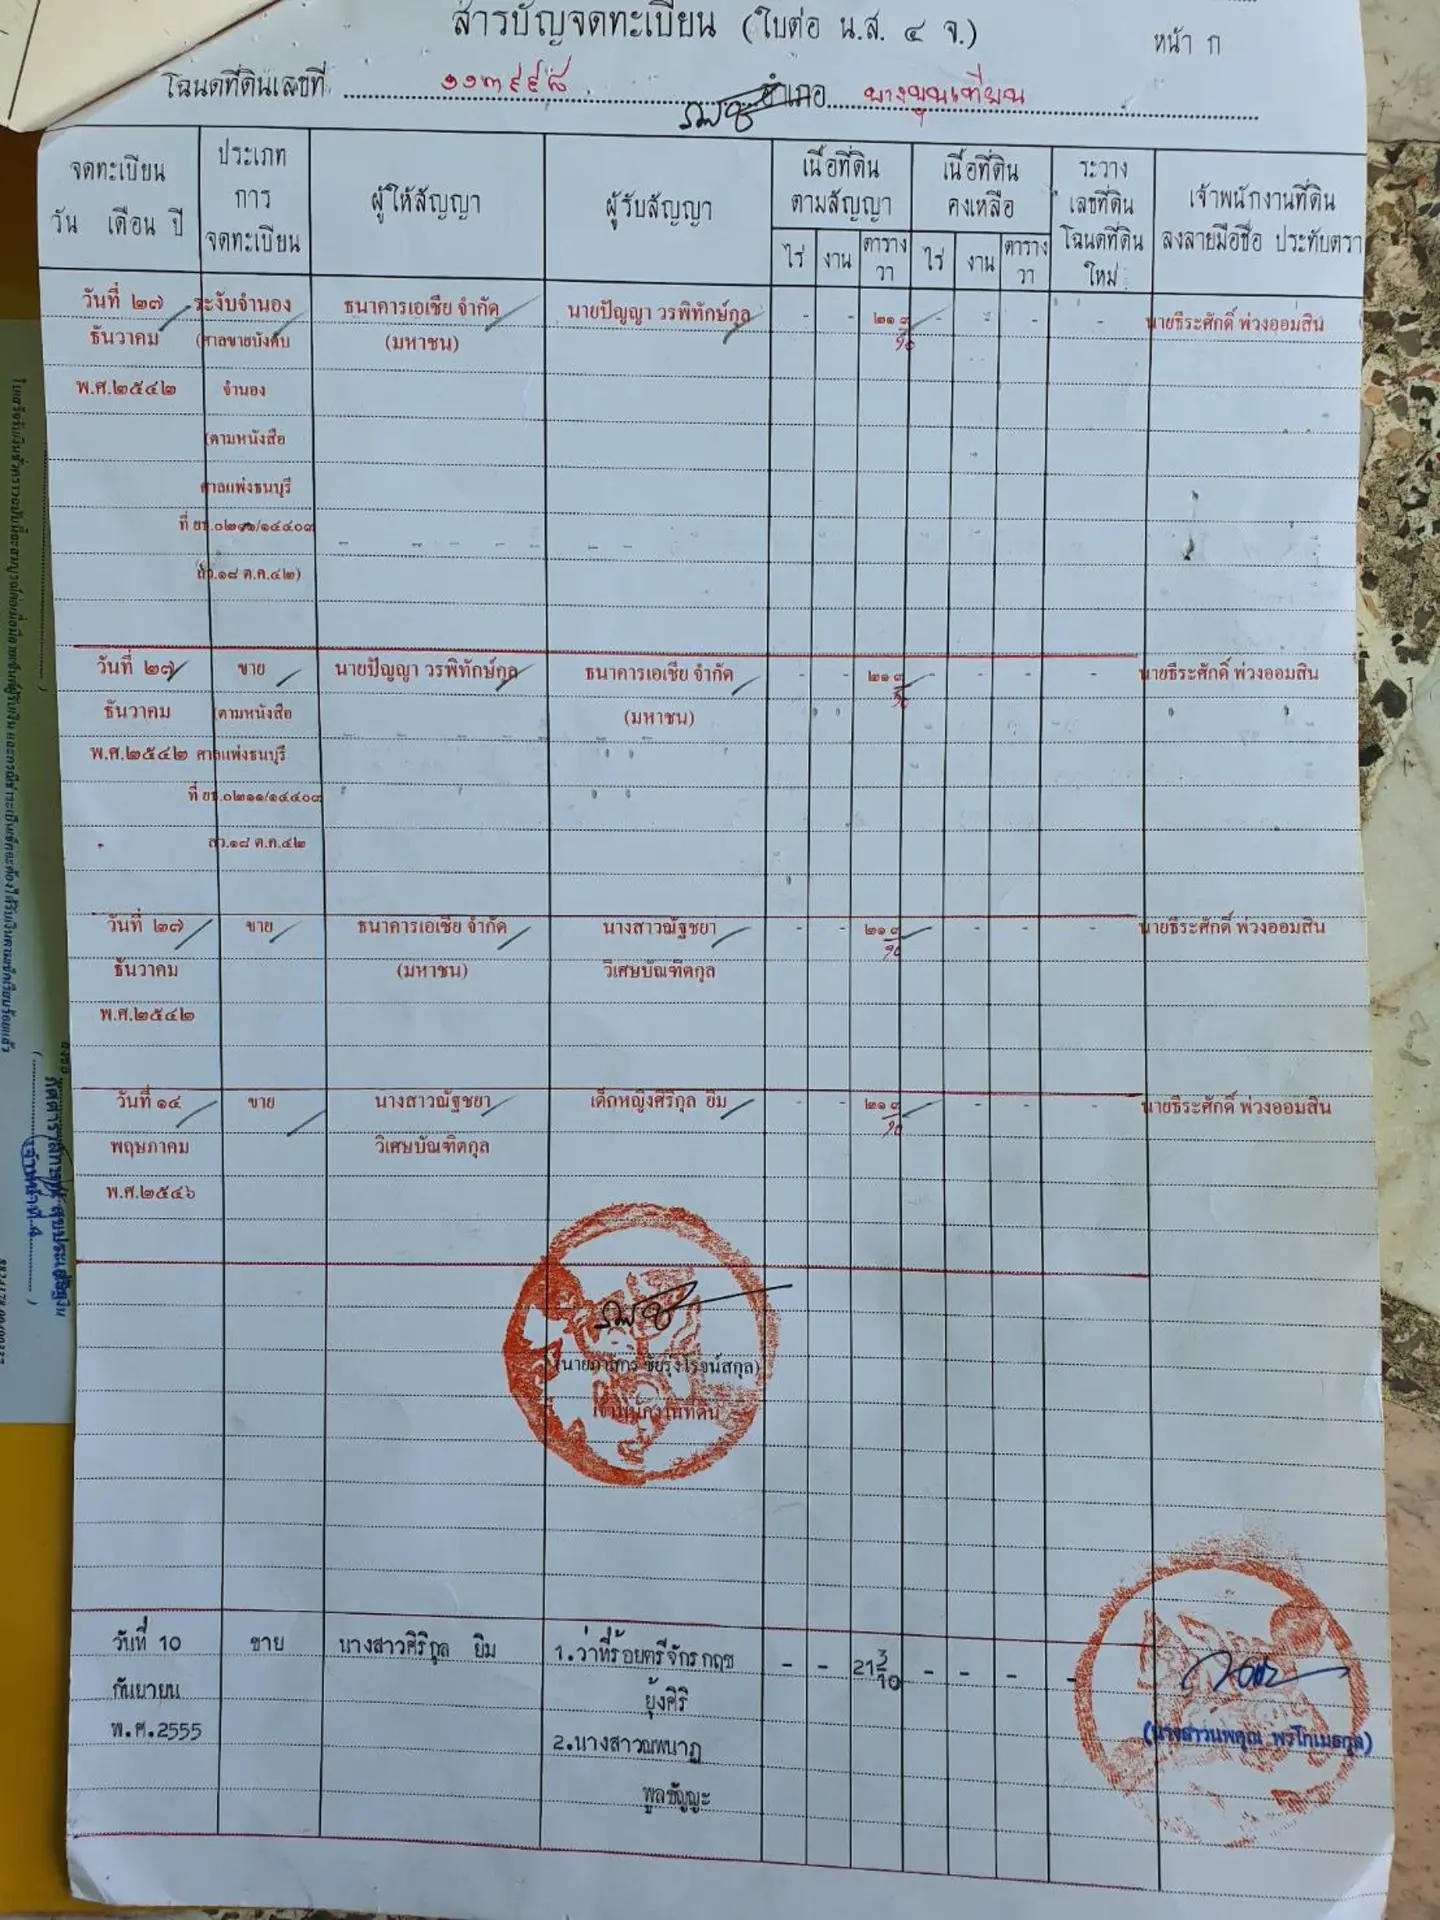 สารบัญจดทะเบียน (ใบต่อ น.ส. ๔ จ.)
หน้า ก
โฉนดที่ดินเลขที่ ๑๑๓๙๙๘ อำเภอ บางขุนเทียน
จดทะเบียน วัน เดือน ปี
ประเภท การ จดทะเบียน
ผู้ให้สัญญา
ผู้รับสัญญา
เนื้อที่ดิน ตามสัญญา
เนื้อที่ดิน คงเหลือ
ระวาง เลขที่ดิน โฉนดที่ดิน ใหม่
เจ้าพนักงานที่ดิน ลงลายมือชื่อ ประทับตรา
ไร่ งาน ตาราง วา ไร่ งาน ตาราง วา
วันที่ ๒๗ ระงับจำนอง ธนาคารเอเชีย จำกัด นายปัญญา วรพิทักษ์กุล - - ๒๑ ๓/๑๐ - - - - นายธีระศักดิ์ พ่วงออมสิน
ธันวาคม (ศาลขายบังคับ (มหาชน)
พ.ศ.๒๕๔๒ จำนอง
(ตามหนังสือ
ศาลแพ่งธนบุรี
ที่ ยธ.๐๒๑๑/๑๔๔๐๓
ลว.๑๘ ต.ค.๔๒)
วันที่ ๒๗ ขาย นายปัญญา วรพิทักษ์กุล ธนาคารเอเชีย จำกัด - - ๒๑ ๓/๑๐ - - - - นายธีระศักดิ์ พ่วงออมสิน
ธันวาคม (ตามหนังสือ (มหาชน)
พ.ศ.๒๕๔๒ ศาลแพ่งธนบุรี
ที่ ยธ.๐๒๑๑/๑๔๔๐๓
ลว.๑๘ ต.ค.๔๒
วันที่ ๒๗ ขาย ธนาคารเอเชีย จำกัด นางสาวณัฐชยา - - ๒๑ ๓/๑๐ - - - - นายธีระศักดิ์ พ่วงออมสิน
ธันวาคม (มหาชน) วิเศษบัณฑิตกุล
พ.ศ.๒๕๔๒
วันที่ ๑๔ ขาย นางสาวณัฐชยา เด็กหญิงศิริกุล ยิม - - ๒๑ ๓/๑๐ - - - - นายธีระศักดิ์ พ่วงออมสิน
พฤษภาคม วิเศษบัณฑิตกุล
พ.ศ.๒๕๔๖
ชัยรุ่งโรจน์สกุล)
เจ้าพนักงานที่ดิน
วันที่ 10 ขาย นางสาวศิริกุล ยิม 1.ว่าที่ร้อยตรีจักรกฤช - - 21 3/10 - - - -
กันยายน ยุ้งศิริ
พ.ศ.2555 2.นางสาวณพนาฏ
(นางสาวนพคุณ
พูลธัญญะ